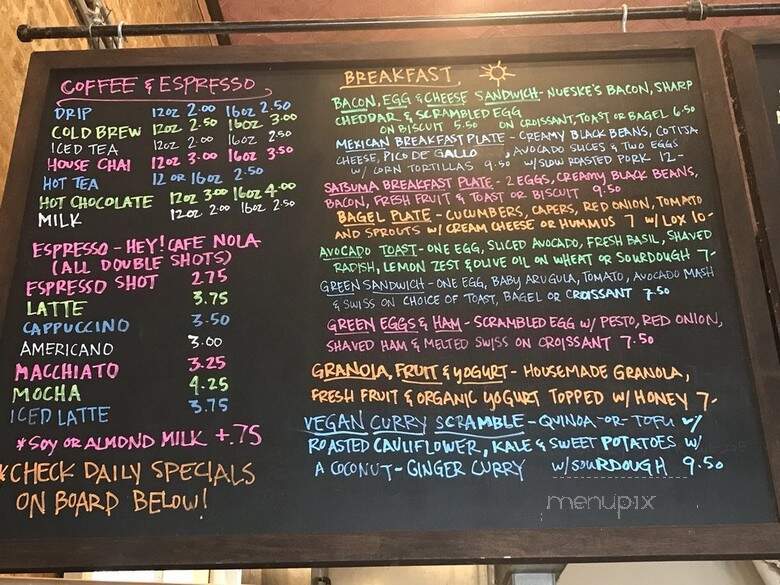 COFFEE & ESPRESSO
DRIP 12oz 2.00 16oz 2.50
COLD BREW 12oz 2.50 16oz 3.00
ICED TEA 12oz 2.00 16oz 2.50
HOUSE CHAI 12oz 3.00 16oz 3.50
HOT TEA 12 OR 16oz 2.50
HOT CHOCOLATE 12oz 3.00 16oz 4.00
MILK 12oz 2.00 16oz 2.50
ESPRESSO - HEY! CAFE NOLA
(ALL DOUBLE SHOTS)
ESPRESSO SHOT 2.75
LATTE 3.75
CAPPUCCINO 3.50
AMERICANO 3.00
MACCHIATO 3.25
MOCHA 4.25
ICED LATTE 3.75
*SOY OR ALMOND MILK +.75
*CHECK DAILY SPECIALS
ON BOARD BELOW!
BREAKFAST
BACON, EGG & CHEESE SANDWICH - NUESKE'S BACON, SHARP
CHEDDAR & SCRAMBLED EGG
ON BISCUIT 5.50 ON CROISSANT, TOAST OR BAGEL 6.50
MEXICAN BREAKFAST PLATE - CREAMY BLACK BEANS, COTIJA
CHEESE, PICO DE GALLO, AVOCADO SLICES & TWO EGGS
W/ CORN TORTILLAS 9.50 W/ SLOW ROASTED PORK 12-
SATSUMA BREAKFAST PLATE - 2 EGGS, CREAMY BLACK BEANS,
BACON, FRESH FRUIT & TOAST OR BISCUIT 9.50
BAGEL PLATE - CUCUMBERS, CAPERS, RED ONION, TOMATO
AND SPROUTS W/ CREAM CHEESE OR HUMMUS 7 W/ LOX 10-
AVOCADO TOAST - ONE EGG, SLICED AVOCADO, FRESH BASIL, SHAVED
RADISH, LEMON ZEST & OLIVE OIL ON WHEAT OR SOURDOUGH 7-
GREEN SANDWICH - ONE EGG, BABY ARUGULA, TOMATO, AVOCADO MASH
& SWISS ON CHOICE OF TOAST, BAGEL OR CROISSANT 7.50
GREEN EGGS & HAM - SCRAMBLED EGG W/ PESTO, RED ONION,
SHAVED HAM & MELTED SWISS ON CROISSANT 7.50
GRANOLA, FRUIT & YOGURT - HOUSEMADE GRANOLA,
FRESH FRUIT & ORGANIC YOGURT TOPPED W/ HONEY 7-
VEGAN CURRY SCRAMBLE - QUINOA -OR- TOFU W/
ROASTED CAULIFLOWER, KALE & SWEET POTATOES W/
A COCONUT-GINGER CURRY W/ SOURDOUGH 9.50
menupix